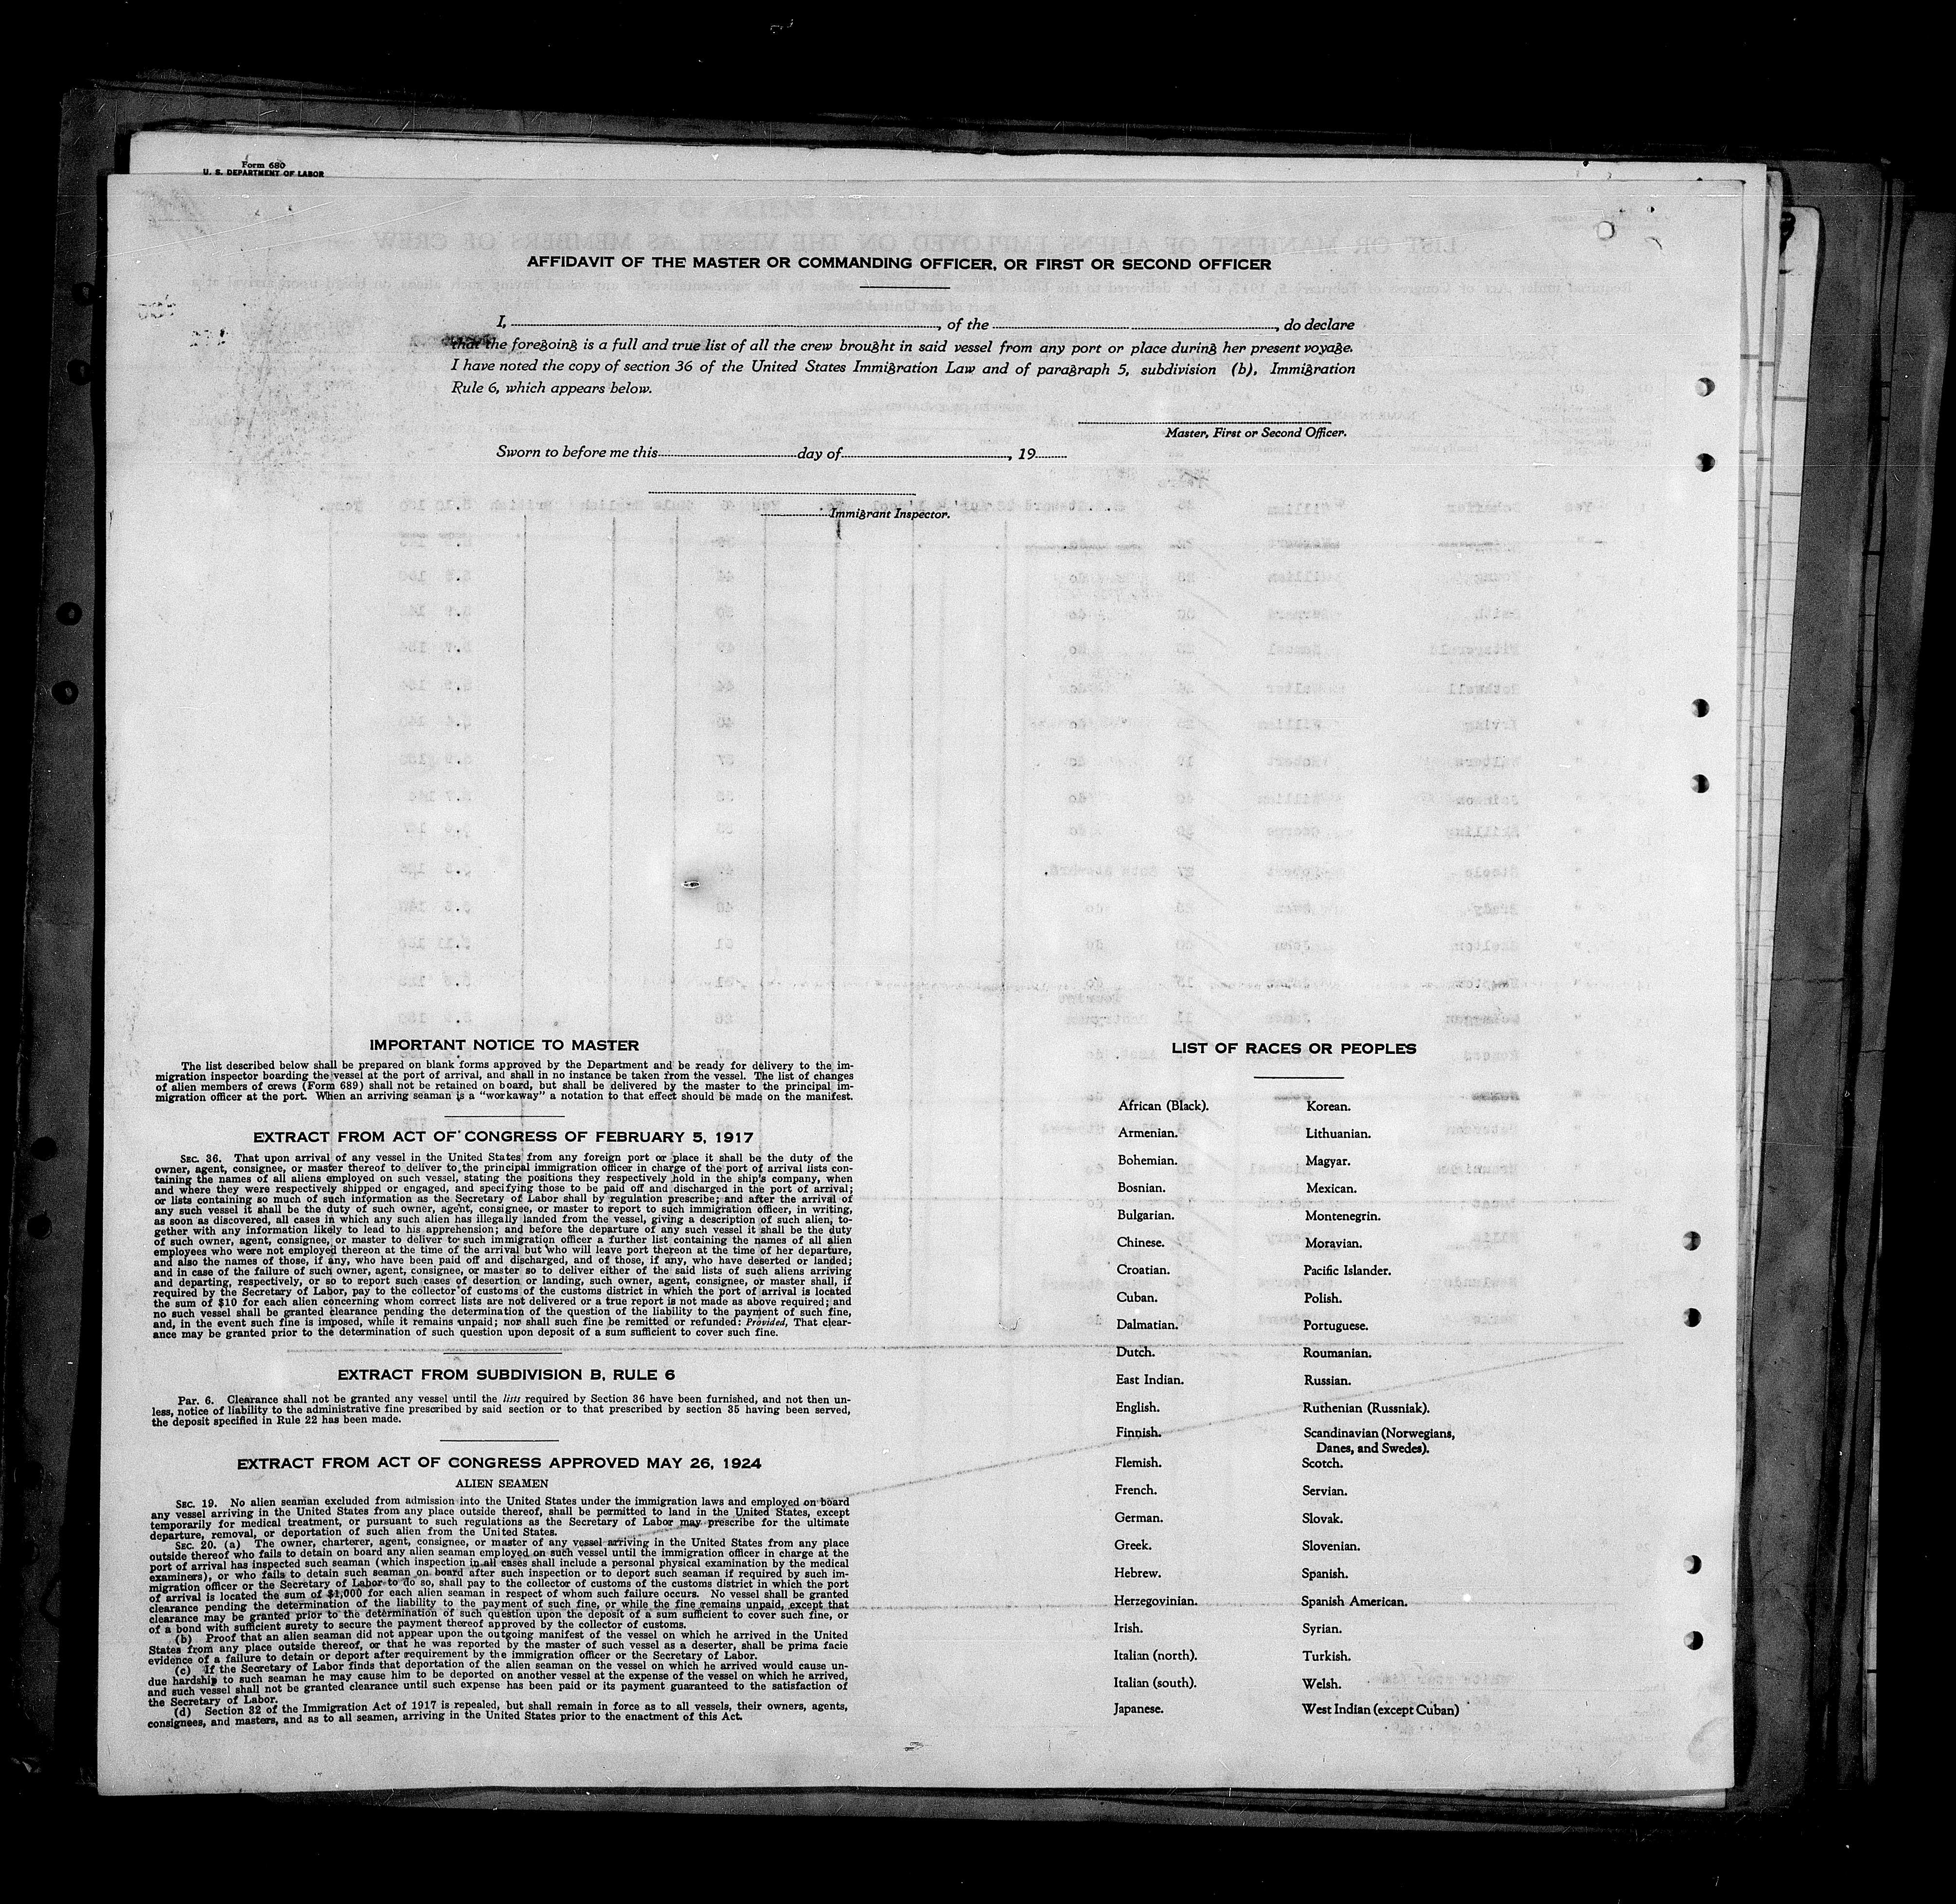 Form 680
U. S. DEPARTMENT OF LABOR
AFFIDAVIT OF THE MASTER OR COMMANDING OFFICER, OR FIRST OR SECOND OFFICER
I, , of the , do declare
that the foregoing is a full and true list of all the crew brought in said vessel from any port or place during her present voyage.
I have noted the copy of section 36 of the United States Immigration Law and of paragraph 5, subdivision (b), Immigration
Rule 6, which appears below.
Master, First or Second Officer.
Sworn to before me this day of , 19
Immigrant Inspector.
IMPORTANT NOTICE TO MASTER
The list described below shall be prepared on blank forms approved by the Department and be ready for delivery to the im-
migration inspector boarding the vessel at the port of arrival, and shall in no instance be taken from the vessel. The list of changes
of alien members of crews (Form 689) shall not be retained on board, but shall be delivered by the master to the principal im-
migration officer at the port. When an arriving seaman is a "workaway" a notation to that effect should be made on the manifest.
EXTRACT FROM ACT OF CONGRESS OF FEBRUARY 5, 1917
SEC. 36. That upon arrival of any vessel in the United States from any foreign port or place it shall be the duty of the
owner, agent, consignee, or master thereof to deliver to the principal immigration officer in charge of the port of arrival lists con-
taining the names of all aliens employed on such vessel, stating the positions they respectively hold in the ship's company, when
and where they were respectively shipped or engaged, and specifying those to be paid off and discharged in the port of arrival;
or lists containing so much of such information as the Secretary of Labor shall by regulation prescribe; and after the arrival of
any such vessel it shall be the duty of such owner, agent, consignee, or master to report to such immigration officer, in writing,
as soon as discovered, all cases in which any such alien has illegally landed from the vessel, giving a description of such alien, to-
gether with any information likely to lead to his apprehension; and before the departure of any such vessel it shall be the duty
of such owner, agent, consignee, or master to deliver to such immigration officer a further list containing the names of all alien
employees who were not employed thereon at the time of the arrival but who will leave port thereon at the time of her departure,
and also the names of those, if any, who have been paid off and discharged, and of those, if any, who have deserted or landed;
and in case of the failure of such owner, agent, consignee, or master so to deliver either of the said lists of such aliens arriving
and departing, respectively, or so to report such cases of desertion or landing, such owner, agent, consignee, or master shall, if
required by the Secretary of Labor, pay to the collector of customs of the customs district in which the port of arrival is located
the sum of $10 for each alien concerning whom correct lists are not delivered or a true report is not made as above required; and
no such vessel shall be granted clearance pending the determination of the question of the liability to the payment of such fine,
and, in the event such fine is imposed, while it remains unpaid; nor shall such fine be remitted or refunded: Provided, That clear-
ance may be granted prior to the determination of such question upon deposit of a sum sufficient to cover such fine.
EXTRACT FROM SUBDIVISION B, RULE 6
Par. 6. Clearance shall not be granted any vessel until the lists required by Section 36 have been furnished, and not then un-
less, notice of liability to the administrative fine prescribed by said section or to that prescribed by section 35 having been served,
the deposit specified in Rule 22 has been made.
EXTRACT FROM ACT OF CONGRESS APPROVED MAY 26, 1924
ALIEN SEAMEN
SEC. 19. No alien seaman excluded from admission into the United States under the immigration laws and employed on board
any vessel arriving in the United States from any place outside thereof, shall be permitted to land in the United States, except
temporarily for medical treatment, or pursuant to such regulations as the Secretary of Labor may prescribe for the ultimate
departure, removal, or deportation of such alien from the United States.
SEC. 20. (a) The owner, charterer, agent, consignee, or master of any vessel arriving in the United States from any place
outside thereof who fails to detain on board any alien seaman employed on such vessel until the immigration officer in charge at the
port of arrival has inspected such seaman (which inspection in all cases shall include a personal physical examination by the medical
examiners), or who fails to detain such seaman on board after such inspection or to deport such seaman if required by such im-
migration officer or the Secretary of Labor to do so, shall pay to the collector of customs of the customs district in which the port
of arrival is located the sum of $1,000 for each alien seaman in respect of whom such failure occurs. No vessel shall be granted
clearance pending the determination of the liability to the payment of such fine, or while the fine remains unpaid, except that
clearance may be granted prior to the determination of such question upon the deposit of a sum sufficient to cover such fine, or
of a bond with sufficient surety to secure the payment thereof approved by the collector of customs.
(b) Proof that an alien seaman did not appear upon the outgoing manifest of the vessel on which he arrived in the United
States from any place outside thereof, or that he was reported by the master of such vessel as a deserter, shall be prima facie
evidence of a failure to detain or deport after requirement by the immigration officer or the Secretary of Labor.
(c) If the Secretary of Labor finds that deportation of the alien seaman on the vessel on which he arrived would cause un-
due hardship to such seaman he may cause him to be deported on another vessel at the expense of the vessel on which he arrived,
and such vessel shall not be granted clearance until such expense has been paid or its payment guaranteed to the satisfaction of
the Secretary of Labor.
(d) Section 32 of the Immigration Act of 1917 is repealed, but shall remain in force as to all vessels, their owners, agents,
consignees, and masters, and as to all seamen, arriving in the United States prior to the enactment of this Act.
LIST OF RACES OR PEOPLES
African (Black).
Armenian.
Bohemian.
Bosnian.
Bulgarian.
Chinese.
Croatian.
Cuban.
Dalmatian.
Dutch.
East Indian.
English.
Finnish.
Flemish.
French.
German.
Greek.
Hebrew.
Herzegovinian.
Irish.
Italian (north).
Italian (south).
Japanese.
Korean.
Lithuanian.
Magyar.
Mexican.
Montenegrin.
Moravian.
Pacific Islander.
Polish.
Portuguese.
Roumanian.
Russian.
Ruthenian (Russniak).
Scandinavian (Norwegians,
Danes, and Swedes).
Scotch.
Servian.
Slovak.
Slovenian.
Spanish.
Spanish American.
Syrian.
Turkish.
Welsh.
West Indian (except Cuban)